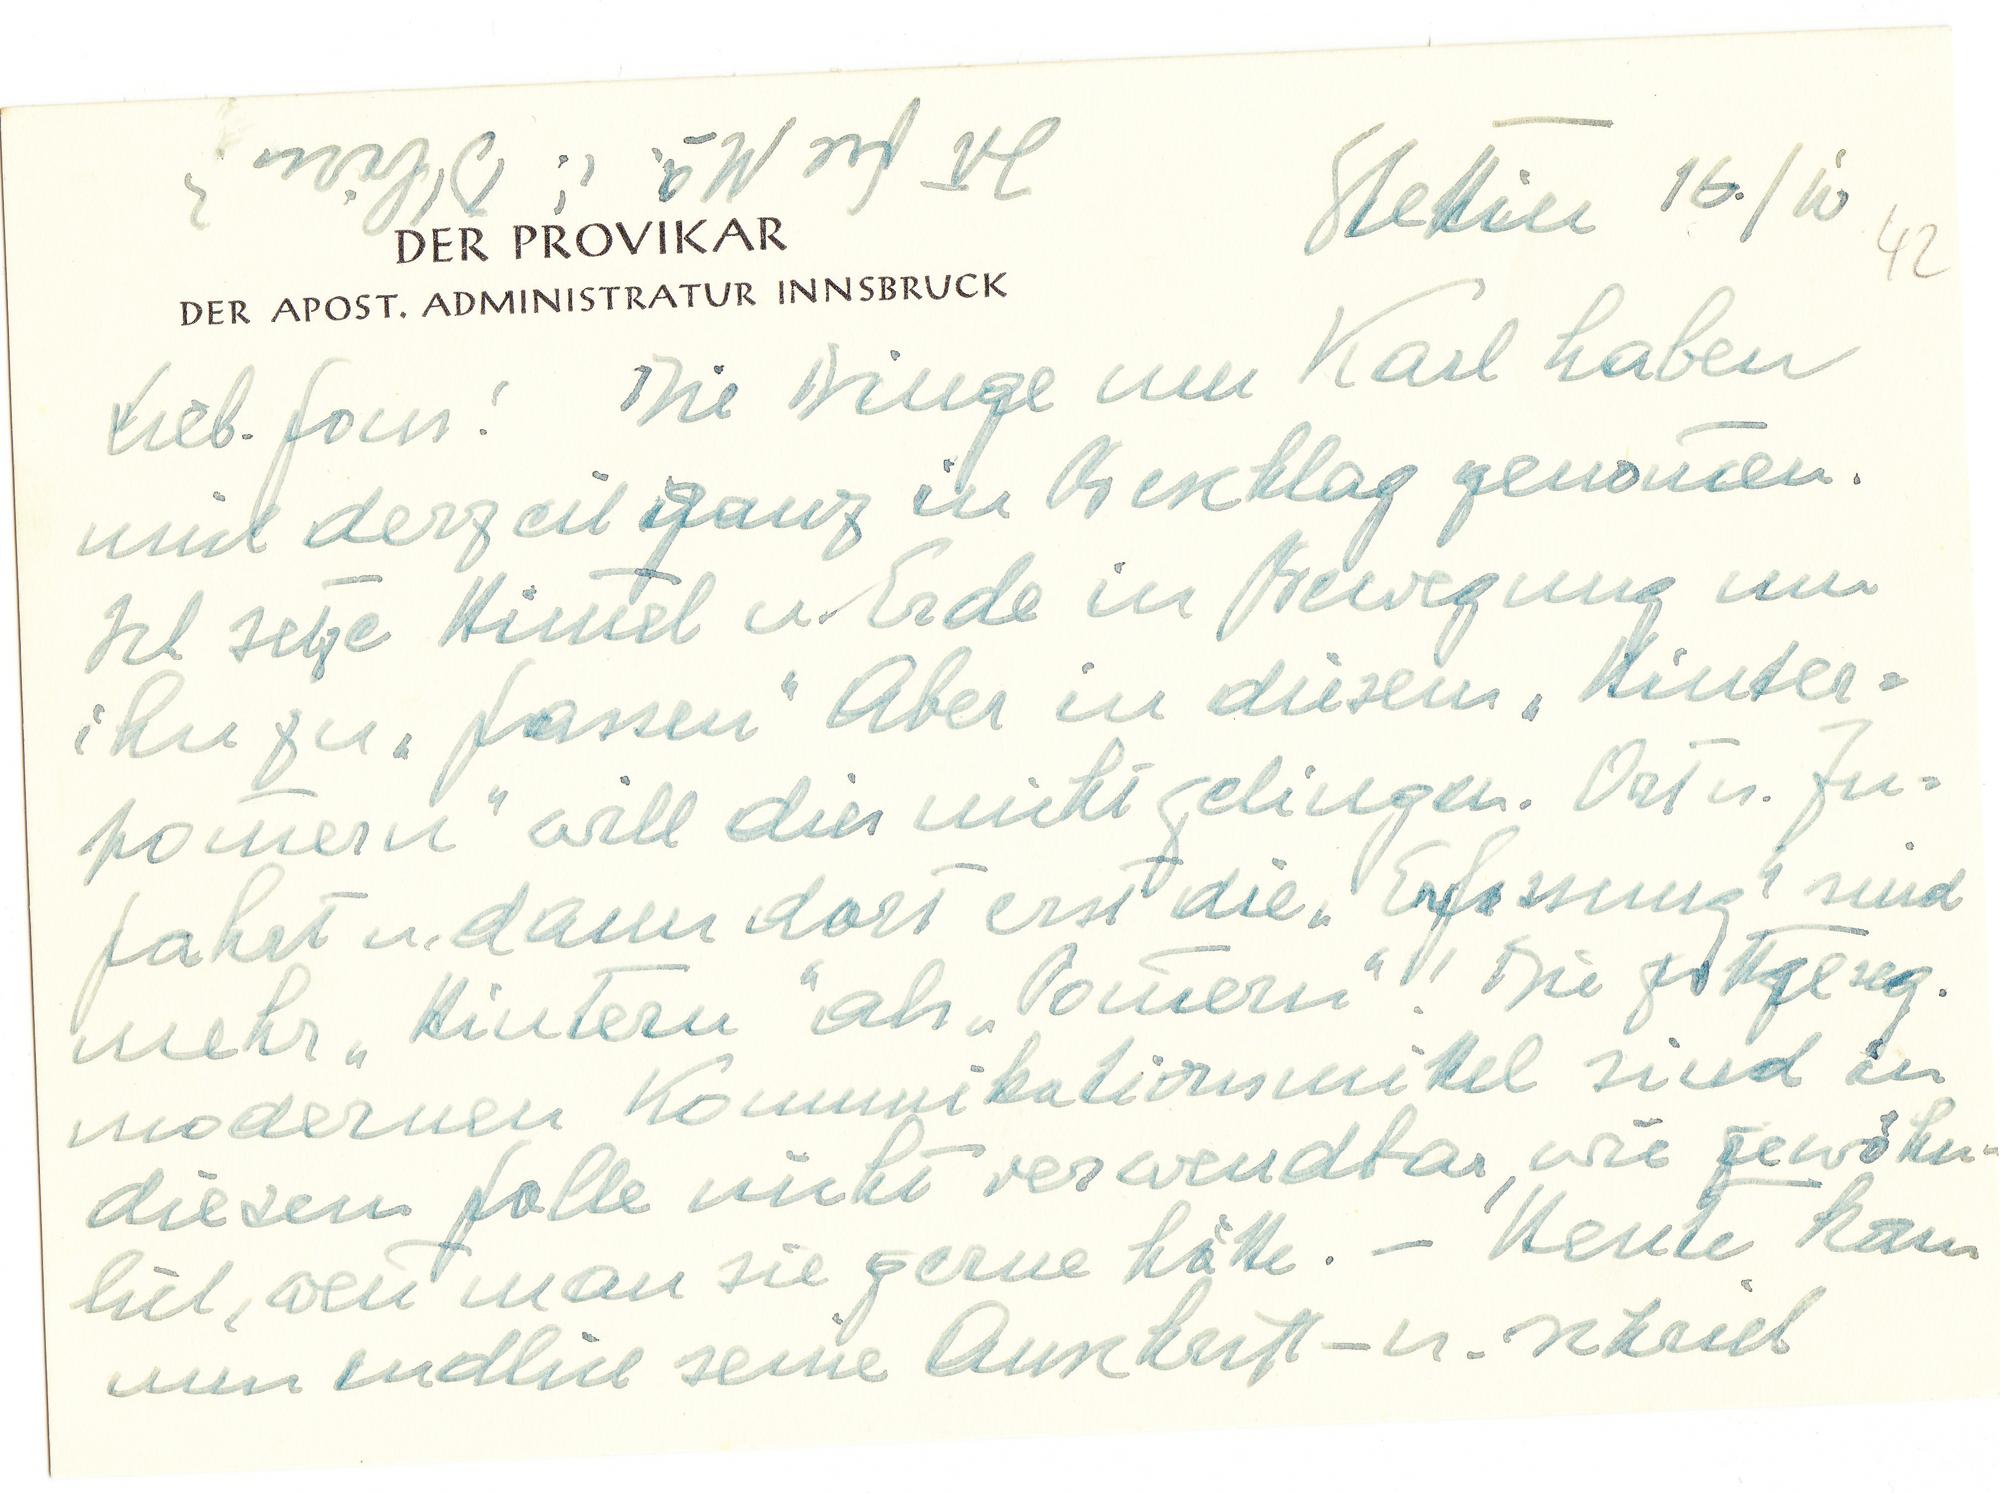 DER PROVIKAR
DER APOST. ADMINISTRATUR INNSBRUCK
Stettin 16./IV
42
Lieb. Hans! Die Dinge um Karl haben
mich derzeit ganz in Beschlag genom̄en.
Ich setze Him̄el u. Erde in Bewegung um
ihn zu „fassen" Aber in diesem „Hinter=
pom̄ern" will dies nicht gelingen. Ort u. Zu=
fahrt u. dann dort erst die „Erfassung" sind
mehr „Hintern" als „Pom̄ern"! Die gottgeseg.
modernen Kommunikationsmittel sind in
diesem Falle nicht verwendbar, wie gewöhn-
lich, wen̄ man sie gerne hätte. – Heute kam
nun endlich seine Anschrift – u. schrieb